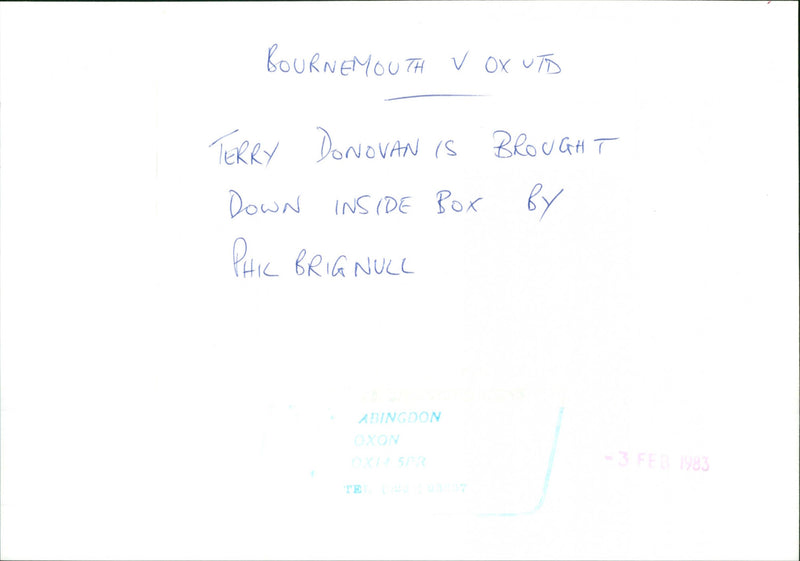 BOURNEMOUTH V OX UTD
TERRY DONOVAN IS BROUGHT
DOWN INSIDE BOX BY
PHIL BRIGNULL
ABINGDON
OXON
TEL
-3 FEB 1983